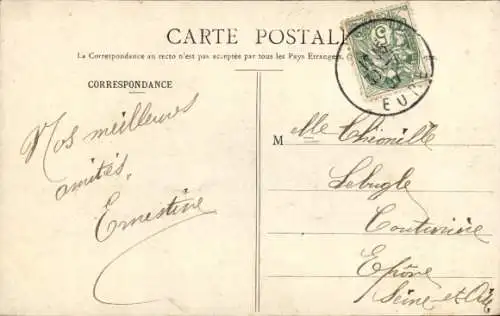 CARTE POSTALE
La Correspondance au recto n'est pas acceptée par tous les Pays Etrangers.
CORRESPONDANCE
Nos meilleures
amitiés.
Ernestine
M
elle
Lebugle
Couturière
Epône
Seine et Oise
5
EURE